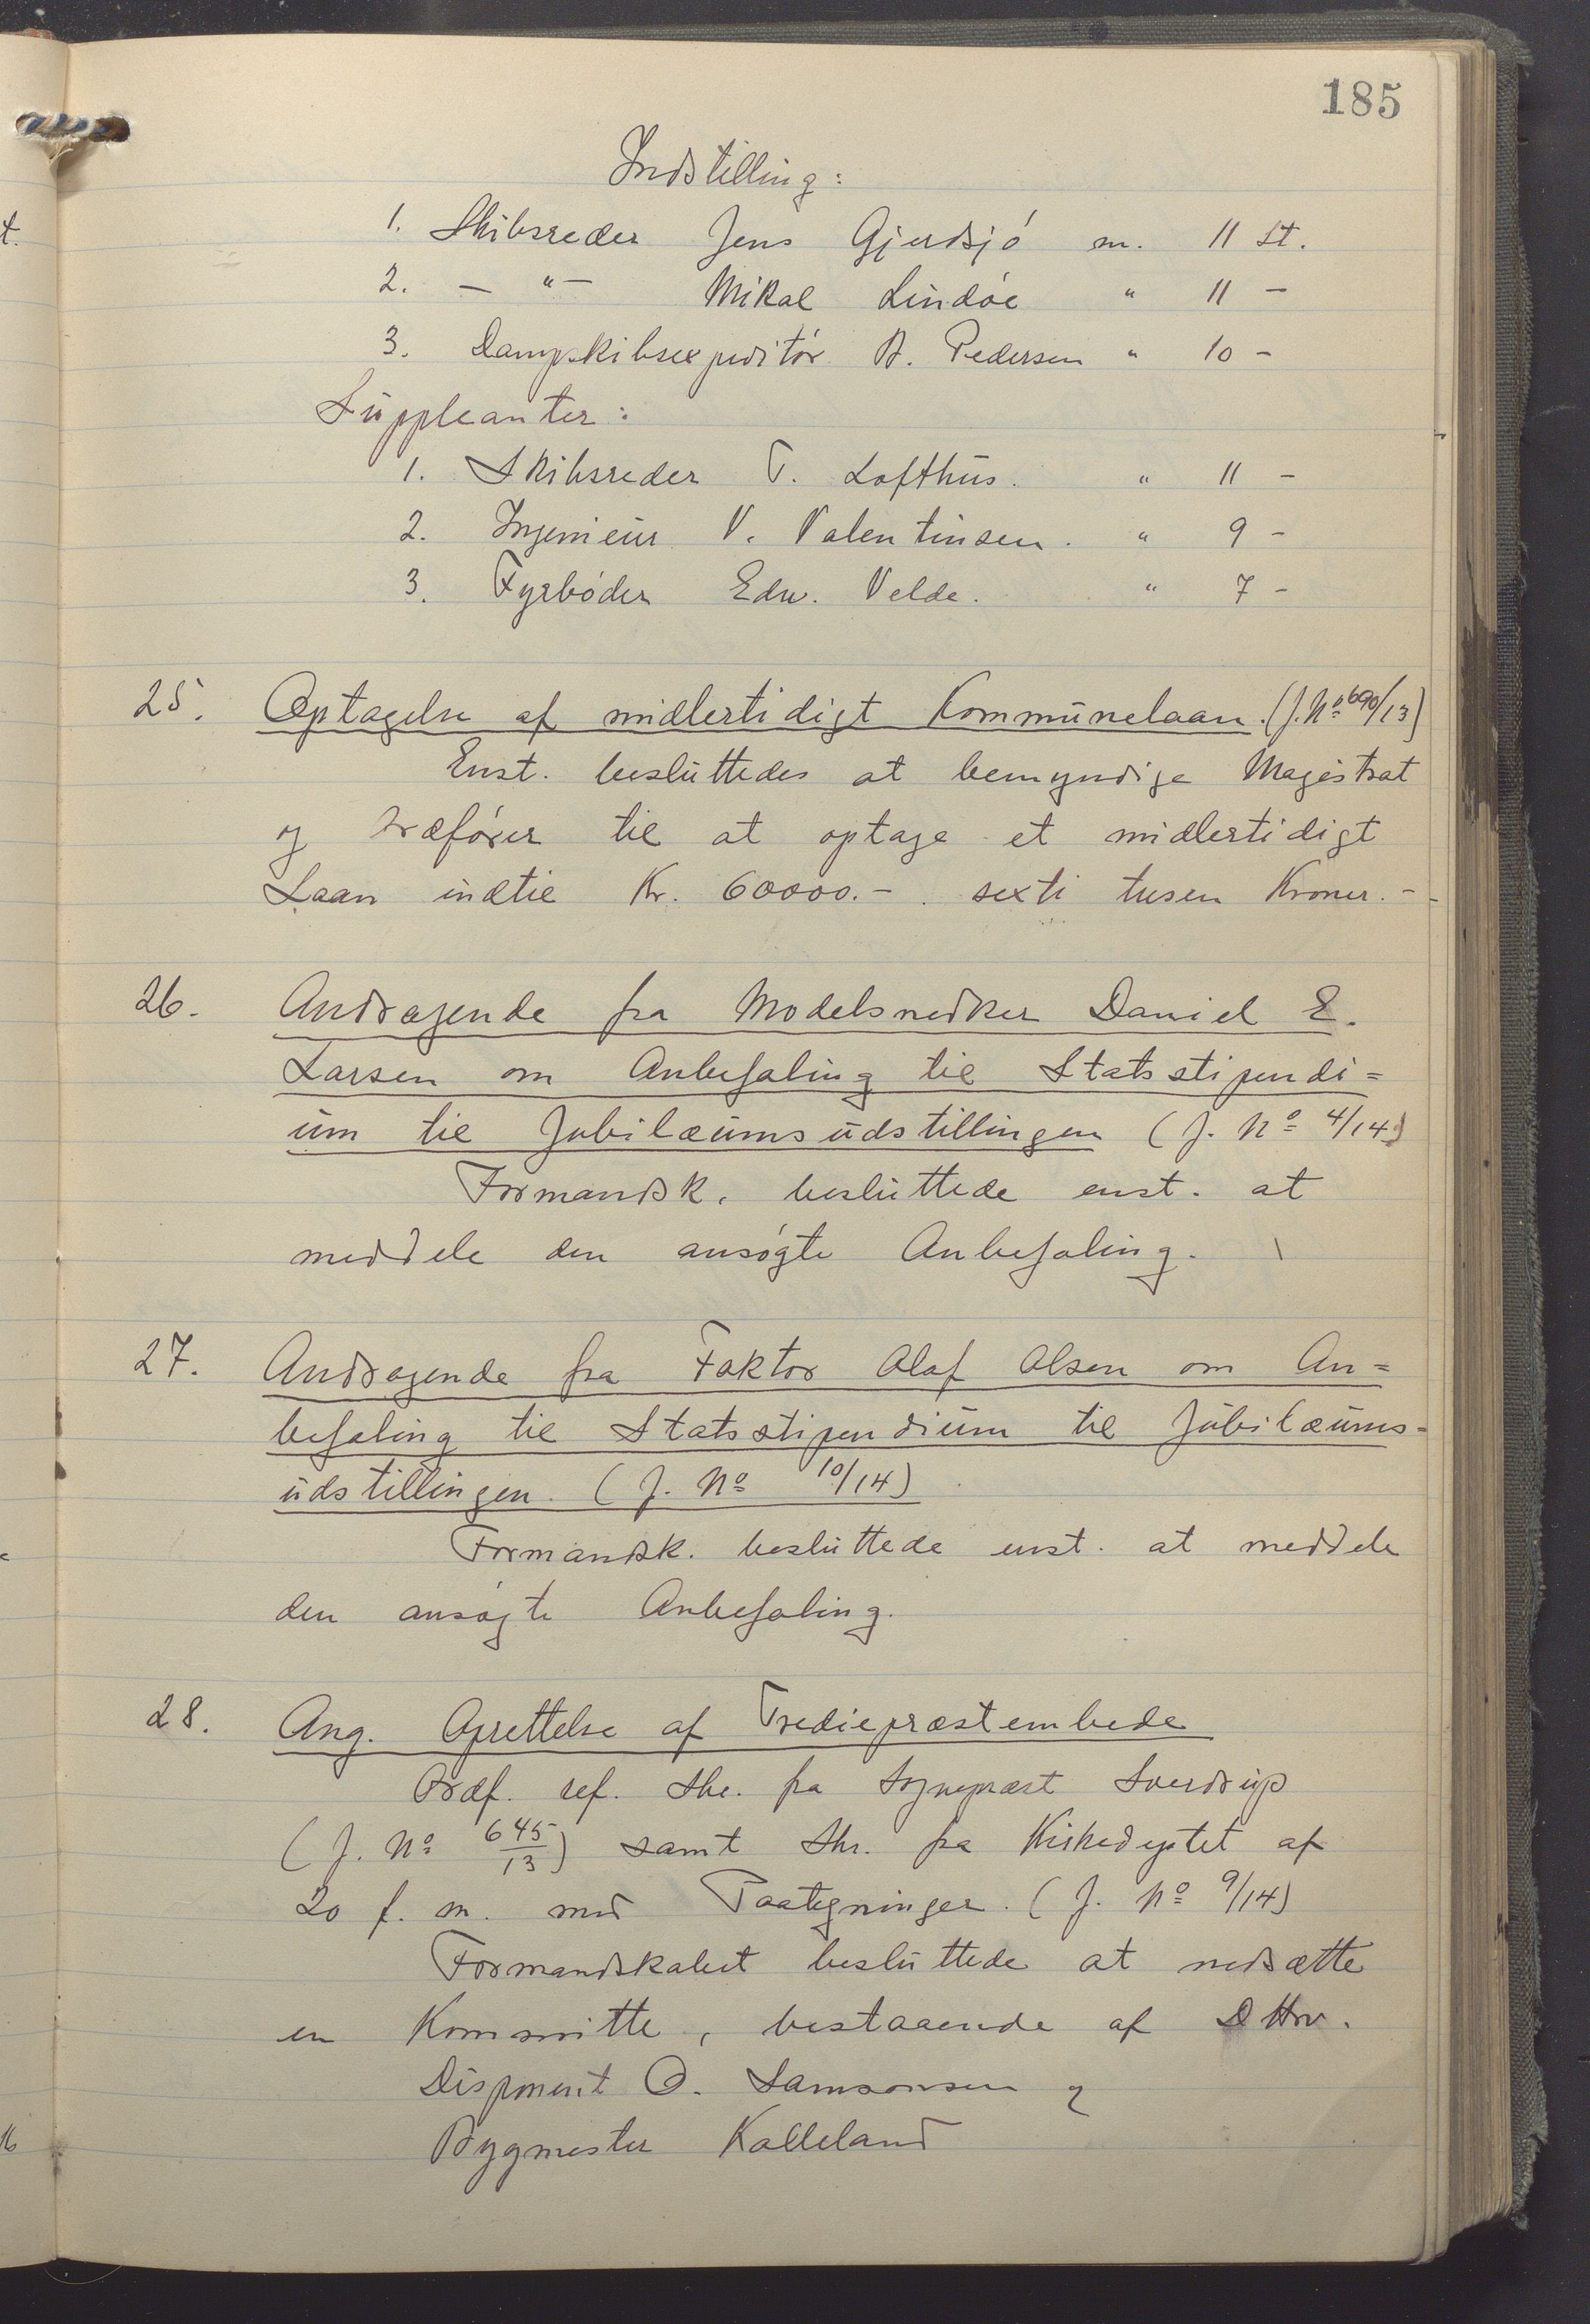 185
Indstilling:
1. Skibsreder Jens Gjerdsjó m. 11 St.
2. — " — Mikal Lindóe " 11 —
3. Dampskibsexpeditór A. Pedersen " 10 —
Suppleanter:
1. Skibsreder T. Lofthus. " 11 —
2. Ingenieur V. Valentinsen. " 9 —
3. Fyrbóder Edw. Velde. " 7 —
25. Optagelse af midlertidigt Kommunelaan. (J. No 690/13)
Enst. besluttedes at bemyndige Magistrat
og Ordfórer til at optage et midlertidigt
Laan indtil Kr. 60000.- sexti tusen Kroner. —
26. Andragende fra Modelsnedker Daniel E.
Larsen om Anbefaling til Statsstipendi=
um til Jubilæumsudstillingen (J. No 4/14)
Formandsk. besluttede enst. at
meddele den ansógte Anbefaling.
27. Andragende fra Faktor Olaf Olsen om An=
befaling til Statsstipendium til Jubilæums-
udstillingen. (J. No 10/14)
Formandsk. besluttede enst. at meddele
den ansógte Anbefaling.
28. Ang. Oprettelse af Tredieprestembede
Ordf. ref. Skr. fra Sogneprest Sverdrup
(J. No 645/13) samt Skr. fra Kirkedeptet af
20 f. m. med Paategninger. (J. No 9/14)
Formandskabet besluttede at nedsætte
en Kommitte, bestaaende af D Hrr.
Disponent O. Samsonsen og
Bygmester Kalleland